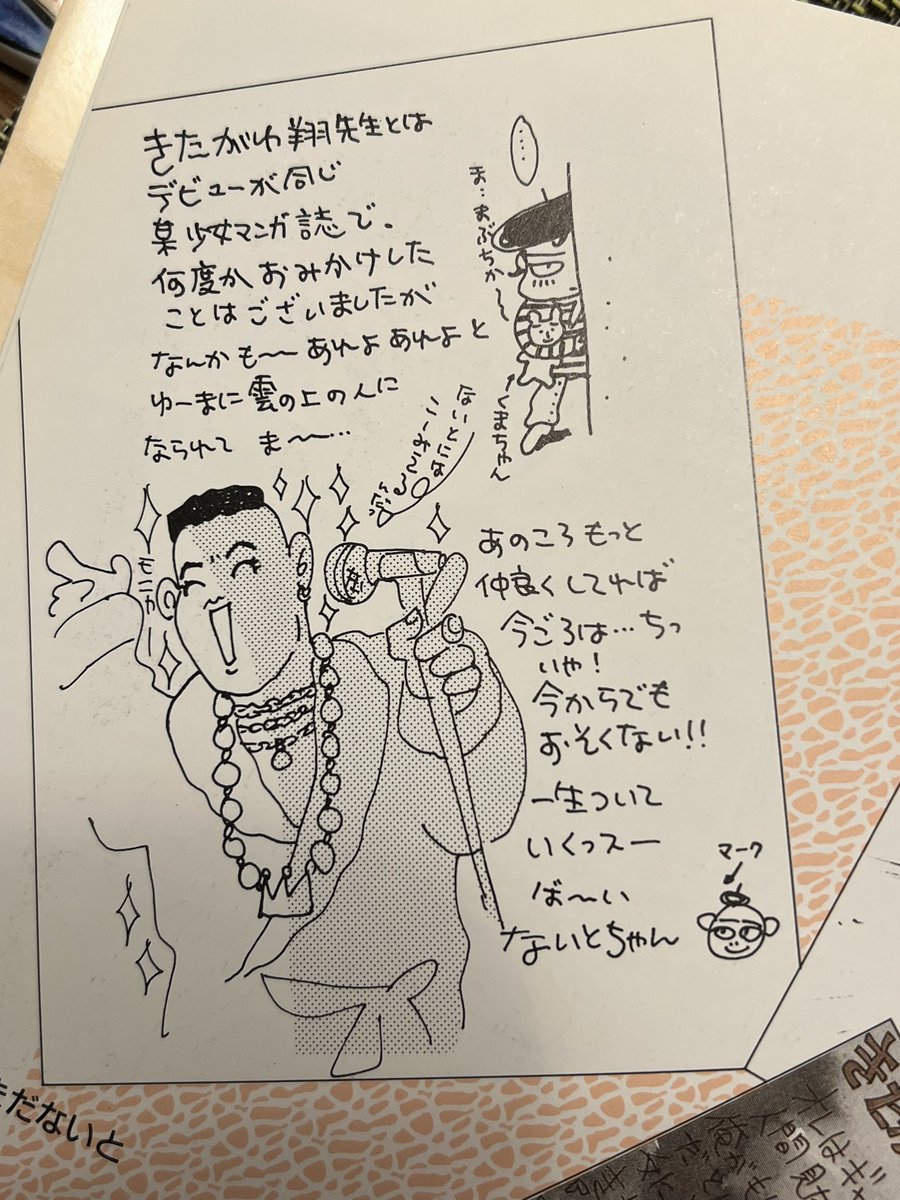 きたがわ翔先生とは
デビューが同じ
某少女マンガ誌で、
何度かおみかけした
ことはございましたが
なんかも〜〜あれよあれよと
ゆーまに雲の上の人に
なられて ま〜〜…
……
ま…まぶちか〜〜
くまちゃん
ないとには
こーみえる
モニカ
あのころもっと
仲良くしてれば
今ごろは…ちっ
いや!
今からでも
おそくない!!
一生ついて
いくっスー
ば〜い
ないとちゃん
マーク
だないと
オレはギ
人間